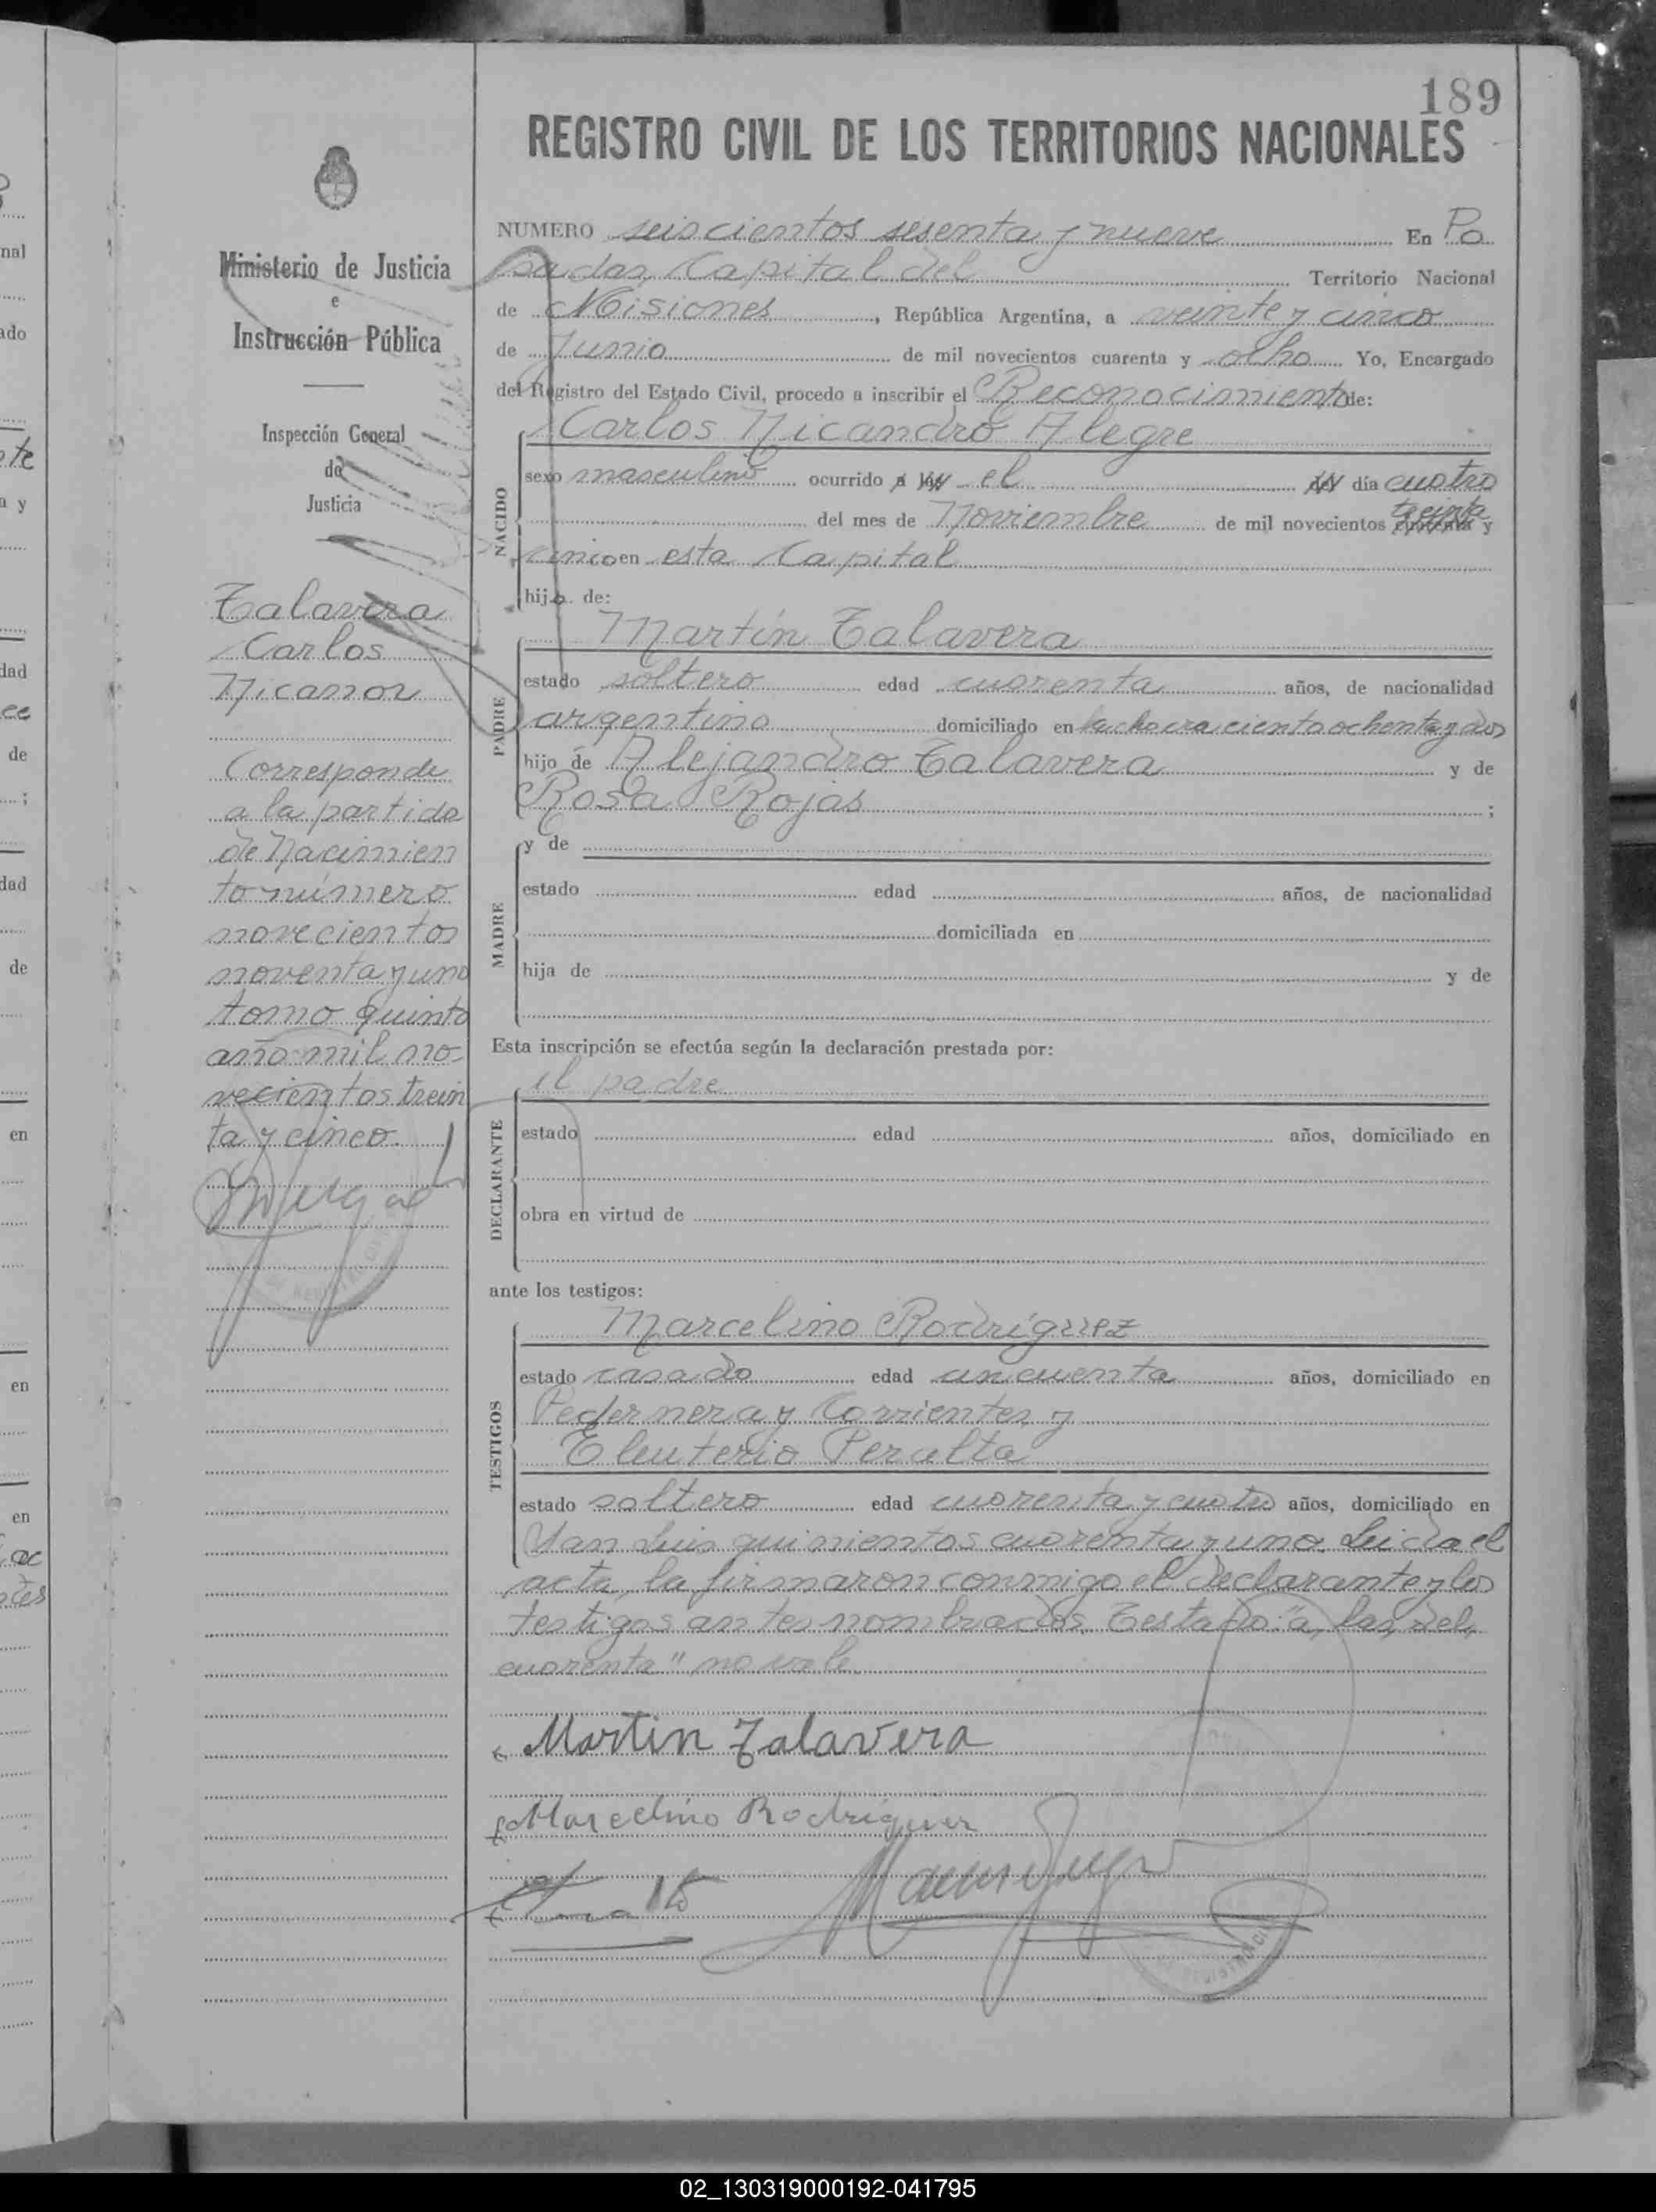 189
REGISTRO CIVIL DE LOS TERRITORIOS NACIONALES
Ministerio de Justicia
e
Instrucción Pública
Inspección General
de
Justicia
Talavera
Carlos
Nicanor
Corresponde
a la partida
de Nacimien
to número
novecientos
noventa y uno
tomo quinto
año mil no-
vecientos trein
ta y cinco.
NUMERO seiscientos sesenta y nueve En Po
sadas, Capital del Territorio Nacional
de Misiones, República Argentina, a veinte y cinco
de Junio de mil novecientos cuarenta y ocho Yo, Encargado
del Registro del Estado Civil, procedo a inscribir el Reconocimiento de:
Carlos Nicandro Alegre
NACIDO
sexo masculino ocurrido a las el del día cuatro
del mes de Noviembre de mil novecientos treinta y
cinco en esta Capital
hijo de:
Martín Talavera
PADRE
estado soltero edad cuarenta años, de nacionalidad
argentino domiciliado en la chacra ciento ochenta y dos
hijo de Alejandro Talavera y de
Rosa Rojas ;
y de
MADRE
estado edad años, de nacionalidad
domiciliada en
hija de y de
Esta inscripción se efectúa según la declaración prestada por:
el padre
DECLARANTE
estado edad años, domiciliado en
obra en virtud de
ante los testigos:
Marcelino Rodríguez
TESTIGOS
estado casado edad cincuenta años, domiciliado en
Pedernera y Corrientes y
Eleuterio Peralta
estado soltero edad cuarenta y cuatro años, domiciliado en
San Luis quinientos cuarenta y uno. Leida el
acta, la firmaron conmigo el declarante y los
testigos antes nombrados. Testado: "a, las, del,
cuarenta" no vale.
Martin Talavera
Marcelino Rodriguez
02_130319000192-041795